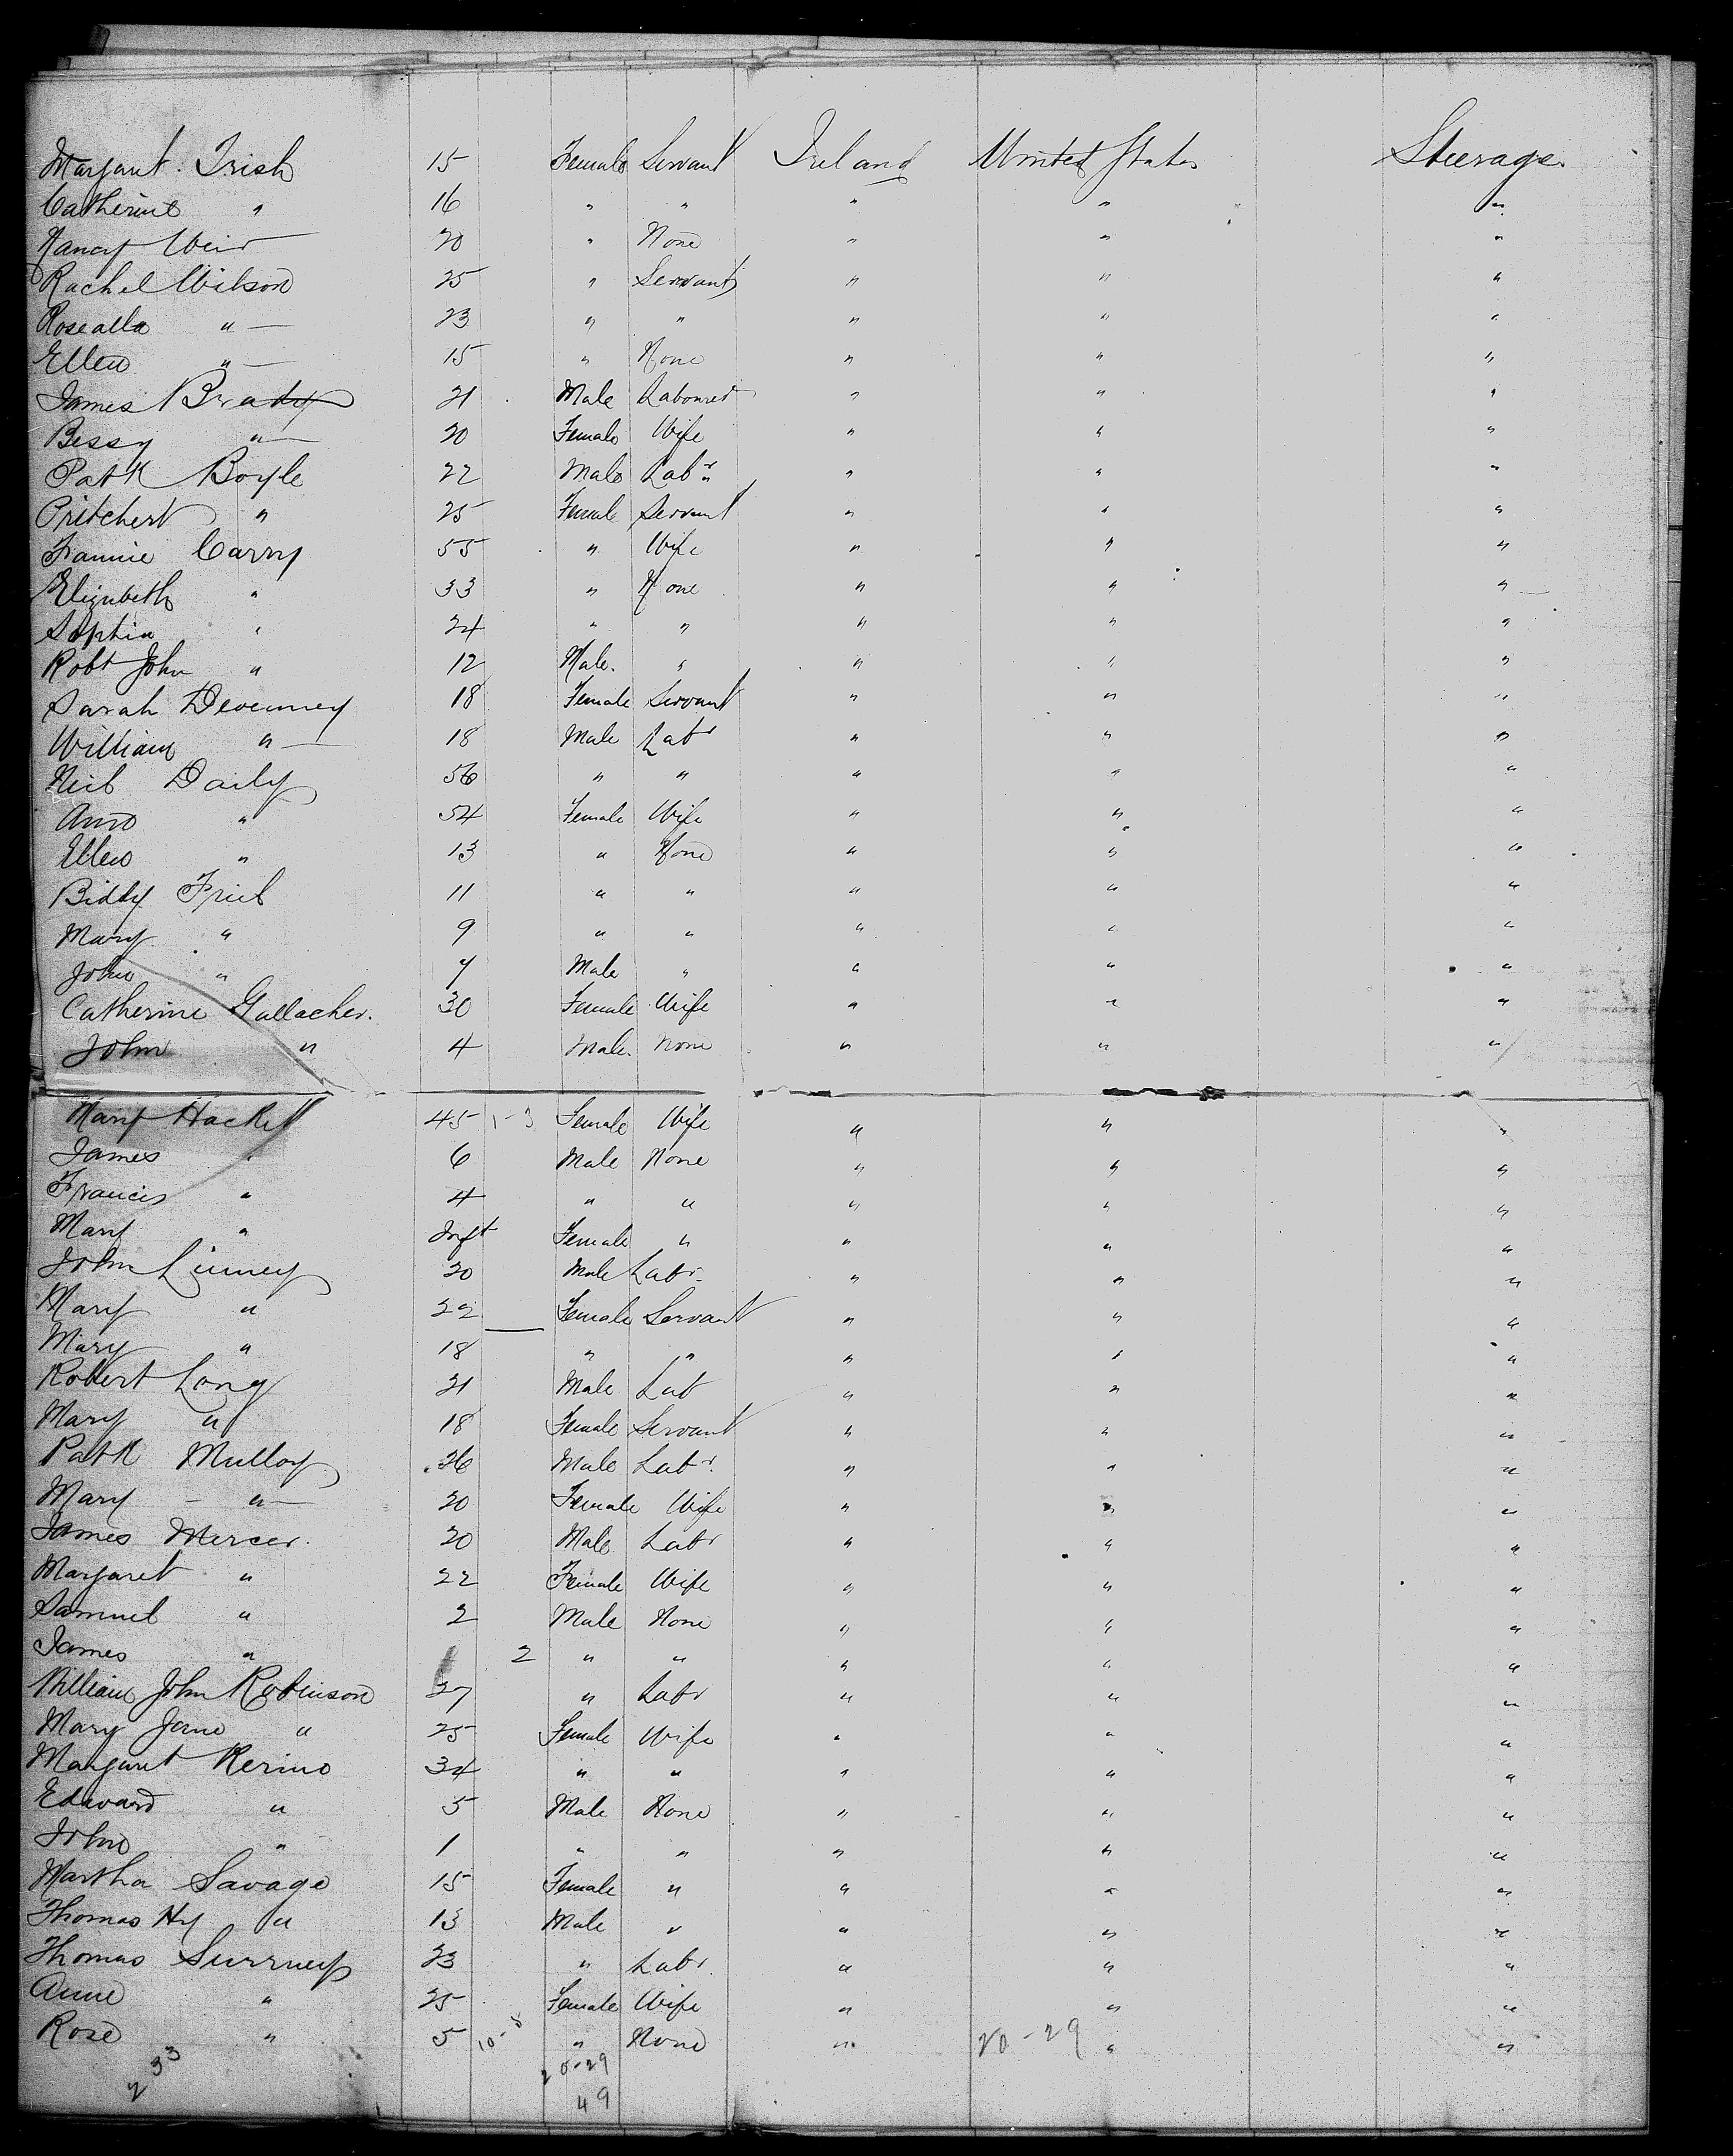 Margaret Irish 15 Female Servant Ireland United States Steerage
Catherine " 16 " " " " "
Nancy Weir 20 " None " " "
Rachel Wilson 25 " Servant " " "
Rosealla " 23 " " " " "
Ellen " 15 " None " " "
James Brady 21 Male Labourer " " "
Bessy " 20 Female Wife " " "
Patk Boyle 22 Male Labr " " "
Pritchert " 25 Female Servant " " "
Fannie Carry 55 " Wife " " "
Elizabeth " 33 " None " " "
Sophia " 24 " " " " "
Robt John " 12 Male " " " "
Sarah Devenney 18 Female Servant " " "
William " 18 Male Labr " " "
Neil Daily 56 " " " " "
Ann " 54 Female Wife " " "
Ellen " 13 " None " " "
Biddy Friel 11 " " " " "
Mary " 9 " " " " "
John " 7 Male " " " "
Catherine Gallacher. 30 Female Wife " " "
John " 4 Male. None " " "
Mary Hackett 45 Female Wife " " "
James " 6 Male None " " "
Francis " 4 " " " " "
Mary " Inft Female " " " "
John Linney 20 Male Labr. " " "
Mary " 22 Female Servant " " "
Mary " 18 " " " " "
Robert Long 21 Male Lab " " "
Mary " 18 Female Servant " " "
Patk Mulloy 26 Male Labr. " " "
Mary " 20 Female Wife " " "
James Mercer. 20 Male Labr " " "
Margaret " 22 Female Wife " " "
Samuel " 2 Male None " " "
James " 2 " " " " "
William John Robinson 27 " Labr " " "
Mary Jane " 25 Female Wife " " "
Margaret Kerino 34 " " " " "
Edward " 5 Male None " " "
John " 1 " " " " "
Martha Savage 15 Female " " " "
Thomas Hy " 13 Male " " " "
Thomas Surrney 23 " Labr. " " "
Anne " 25 Female Wife " " "
Rose " 5 10-8 " None " 20-29 " "
233 20-29
49